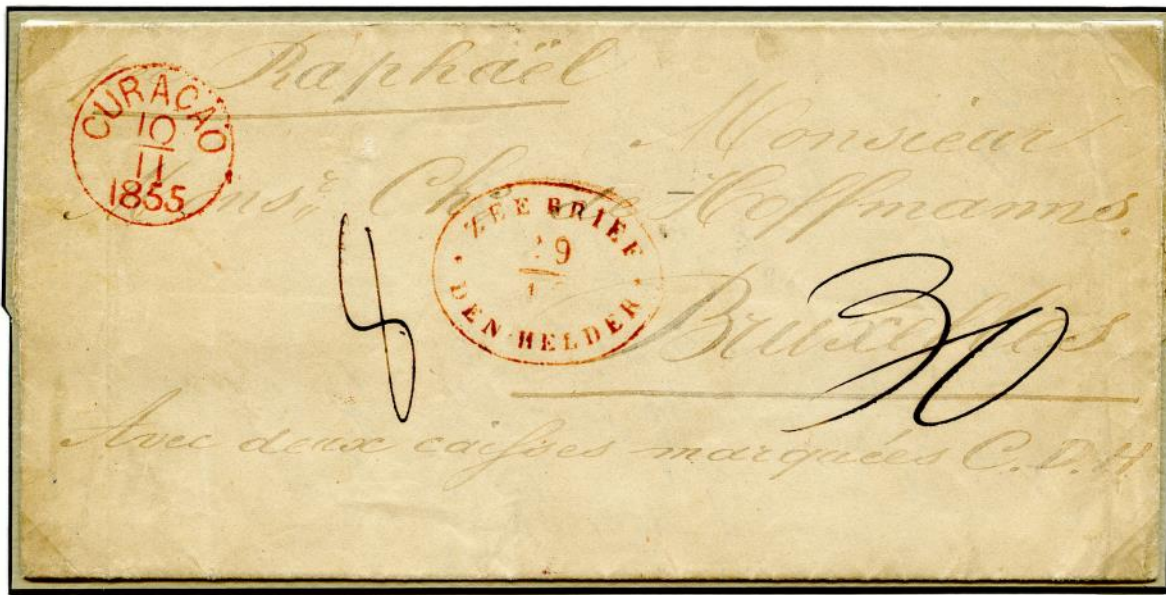 Raphaël
CURAÇAO
10
11
1855
Monsieur
Monsr. Chs. de Hoffmanns.
ZEEBRIEF
29
DEN HELDER
8
30
Bruxelles
Avec deux caisses marquées C. D. H